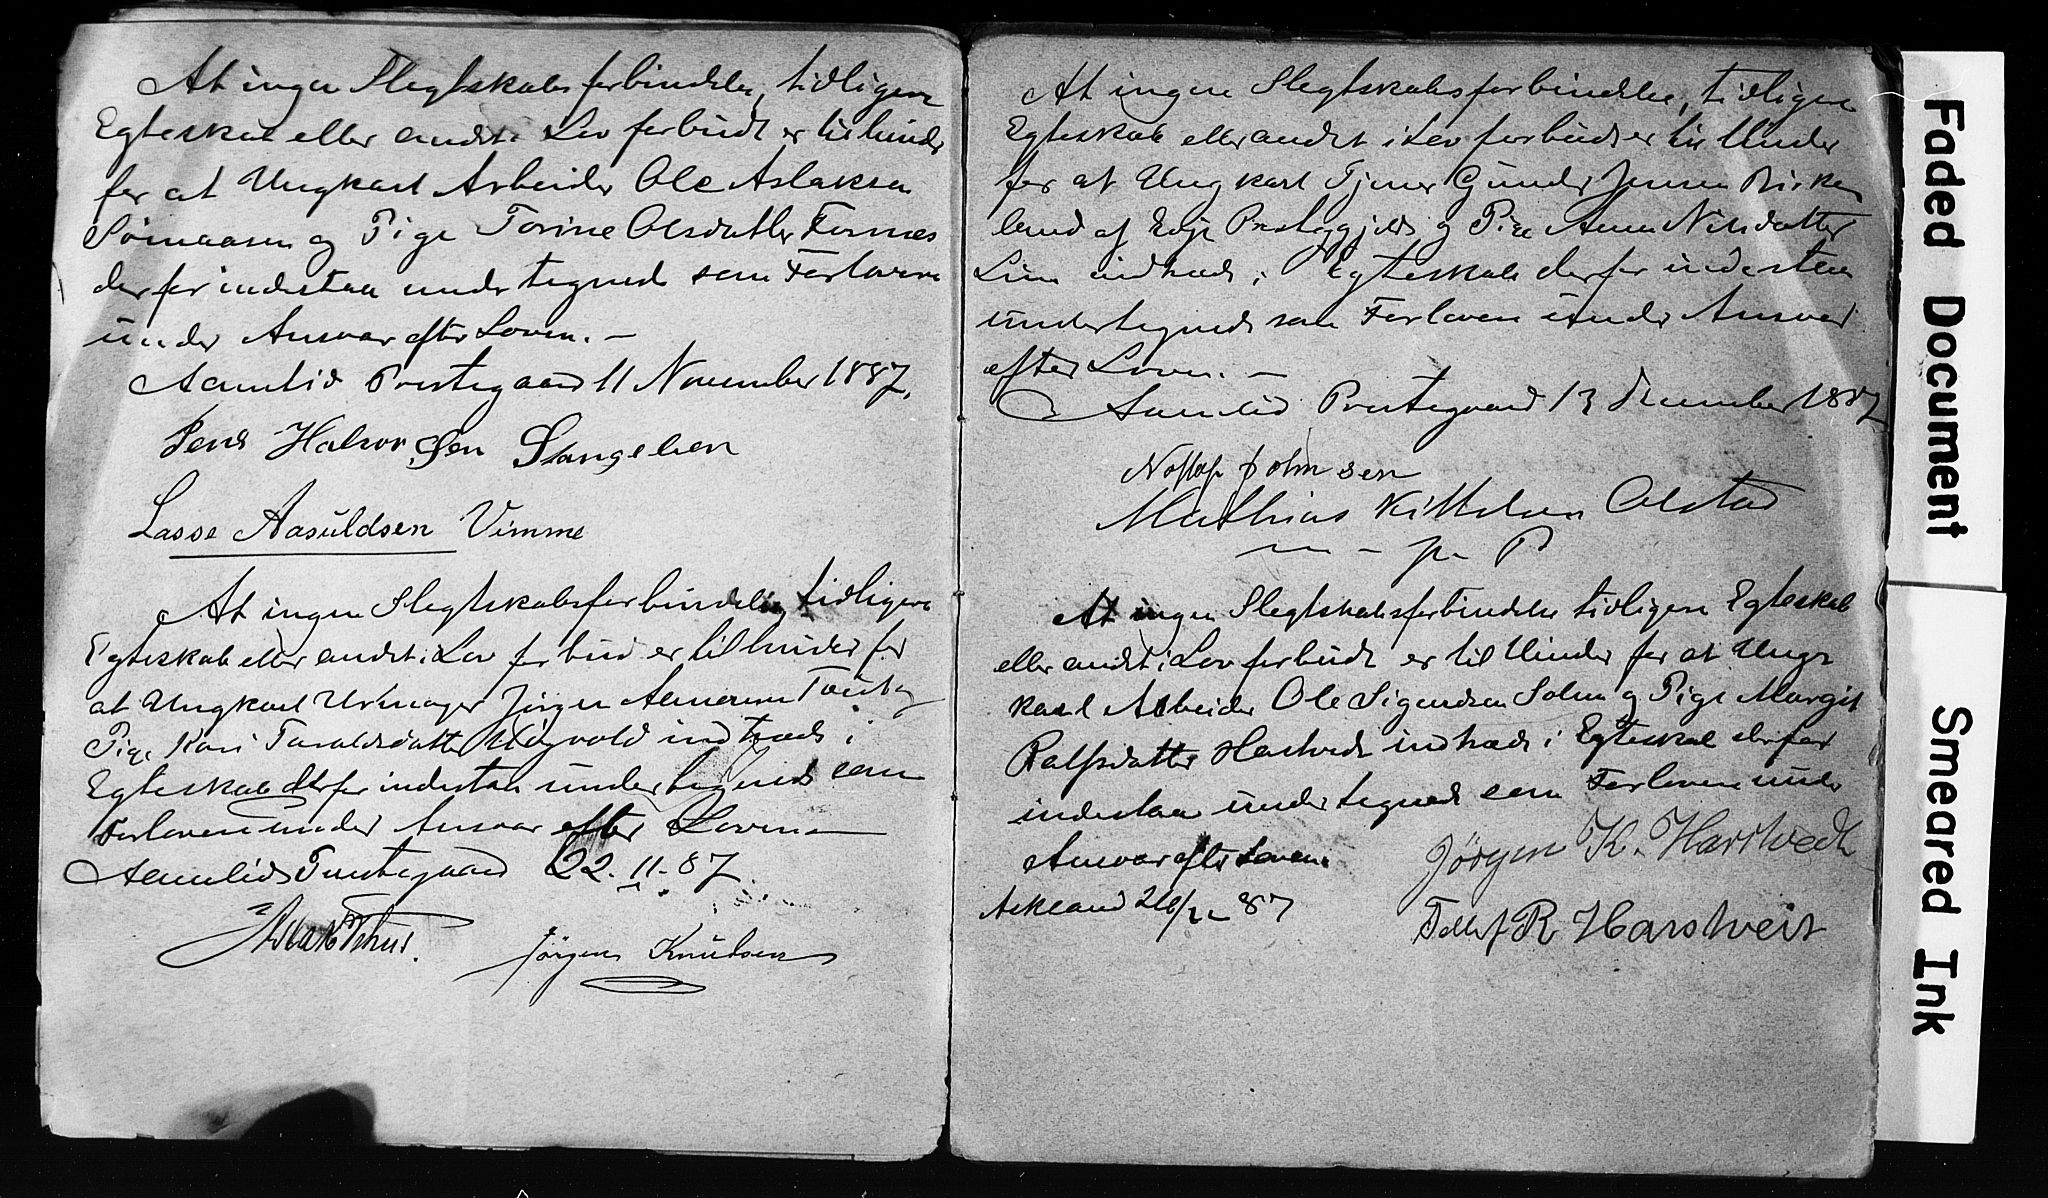 At ingen Slegtskabsforbindelse, tidligere
Egteskab eller andet i Lov forbudt er til hinder
for at Ungkarl Arbeider Ole Aslaksen
Sømaasen og Pige Torine Olsdatter Fosnes
derfor indestaa undertegnede som Forlovere
under Ansvar efter Loven. –
Aamlid Prestegaard 11 November 1887.
Jens Halvorsen Stangelien
Lasse Aasuldsen Vimme
At ingen Slegtskabsforbindelse, tidligere
Egteskab eller andet i Lov forbud er til hinder for
at Ungkarl Urmager Jörgen og
Pige Kari Taraldsdatter indtræde i
Egteskab derfor indestaa undertegnede som
Forlovere under Ansvar efter Loven –
Aamlids Prestegaard 22. 11. 87.
Jörgen Knudsen
At ingen Slegtskabsforbindelse, tidligere
Egteskab eller andet i Lov forbudt er til Hinder
for at Ungkarl Tjener Gunder Jensen Birke
land af Evje Prestegjeld og Pige Anne Nilsdatter
indtræde i Egteskab derfor indestaa
undertegnede som Forlovere under Ansvar
efter Loven. –
Aamlid Prestegaard 13 December 1887
Johnsen
Mathias Kittelsen Olstad
m – p. P
At ingen Slegtskabsforbindelse tidligere Egteskab
eller andet i Lov forbudt er til Hinder for at Ung-
karl Arbeider Ole Sigurdsen og Pige Margit
Rolfsdatter Harstvedt indtræde i Egteskab derfor
indestaa undertegnede som Forlovere under
Ansvar efter Loven.
Jörgen K. Harstvedt
Aakland 26/12 87
Tellef R Harstveit
Faded Document
Smeared Ink